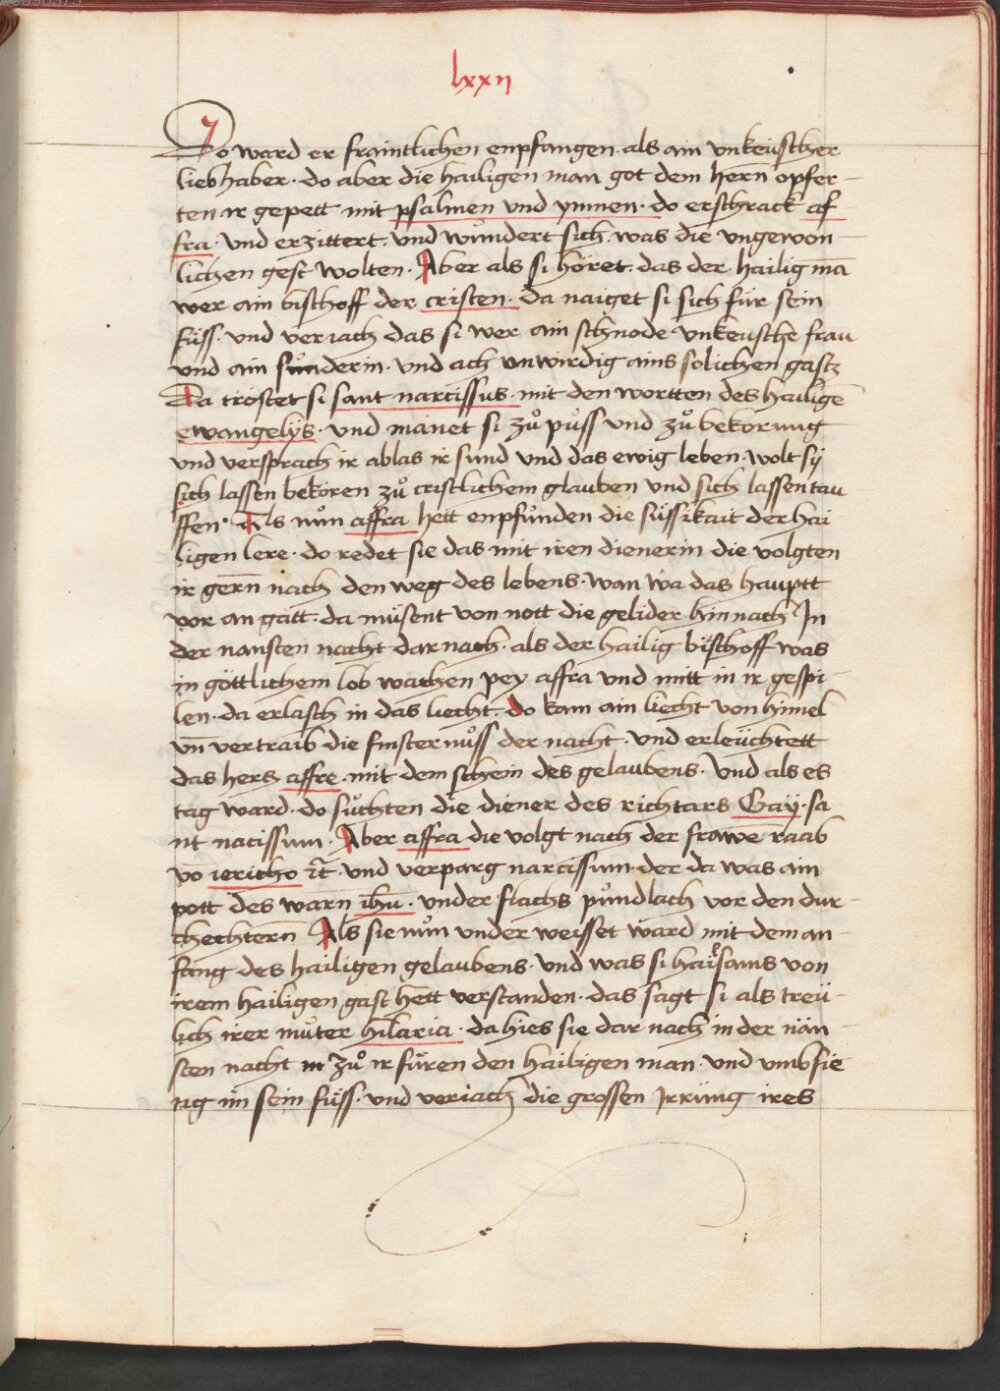 lxxij
Do ward er fraintlichen enpfangen · als ain vnkeuscher
liebhaber · do aber die hailigen man got dem hern̄ opfer-
ten ir gepett mit psalmen und ymnen · do erschrack af
fra · und erzittert · und wundert sich · was die ungewon-
lichen gest wolten · Aber als si höret · das der hailig mā
wer ain bischoff der cristen · da naiget si sich für sein
füss · und veriach das si wer ain schnode vnkeusche frau
und ain sünderin · und ach unwirdig ains solichen gastz
Da tröstet si sant narcissus · mit den wortten des hailigē
ewangelÿs · und manet si zů půss und zů bekorung
und versprach ir ablas ir sund und das ewig leben · wolt sÿ
sich lassen bekören zů cristlichem glauben und sich lassen tau
ffen · Als nůn affra hett enpfůnden die süssikait der hai
ligen lere · do redet sie das mit iren dienerin die volgten
ir gern̄ nach den weg des lebens · wan wa das hauptt
vor an gatt · da müsent von nott die gelider hin nach In
der nansten nacht dar nach · als der hailig bischoff was
in göttlichem lob wachen pey affra und mitt in ir gespi-
len · da erlasch in das liecht · do kam ain liecht von himel
vn̄ vertraib die finsternůss der nacht · und erleüchtett
das hertz affre · mit dem schein des gelaubens · Und als es
tag ward · do sůchten die diener des richtars Gaÿ · sa
nt nacissum · Aber affra die volgt nach der frawē raab
vō iericho · und verparg narcissum · der da was ain
pott des warn̄ ih̄u · under flachs pündlach vor den dur-
chechtern Als sie nůn under weisset ward mit dem an-
fang des hailigen gelaubens · und was si hailsams von
irem hailigen gast hett verstanden · das sagt si als treü-
lich irer můter hilaria · da hies sie dar nach in der nän-
sten nacht in zů ir füren den hailigen man · und umbfie
ng im sein füss · und veriach die grossen Irrüng ires